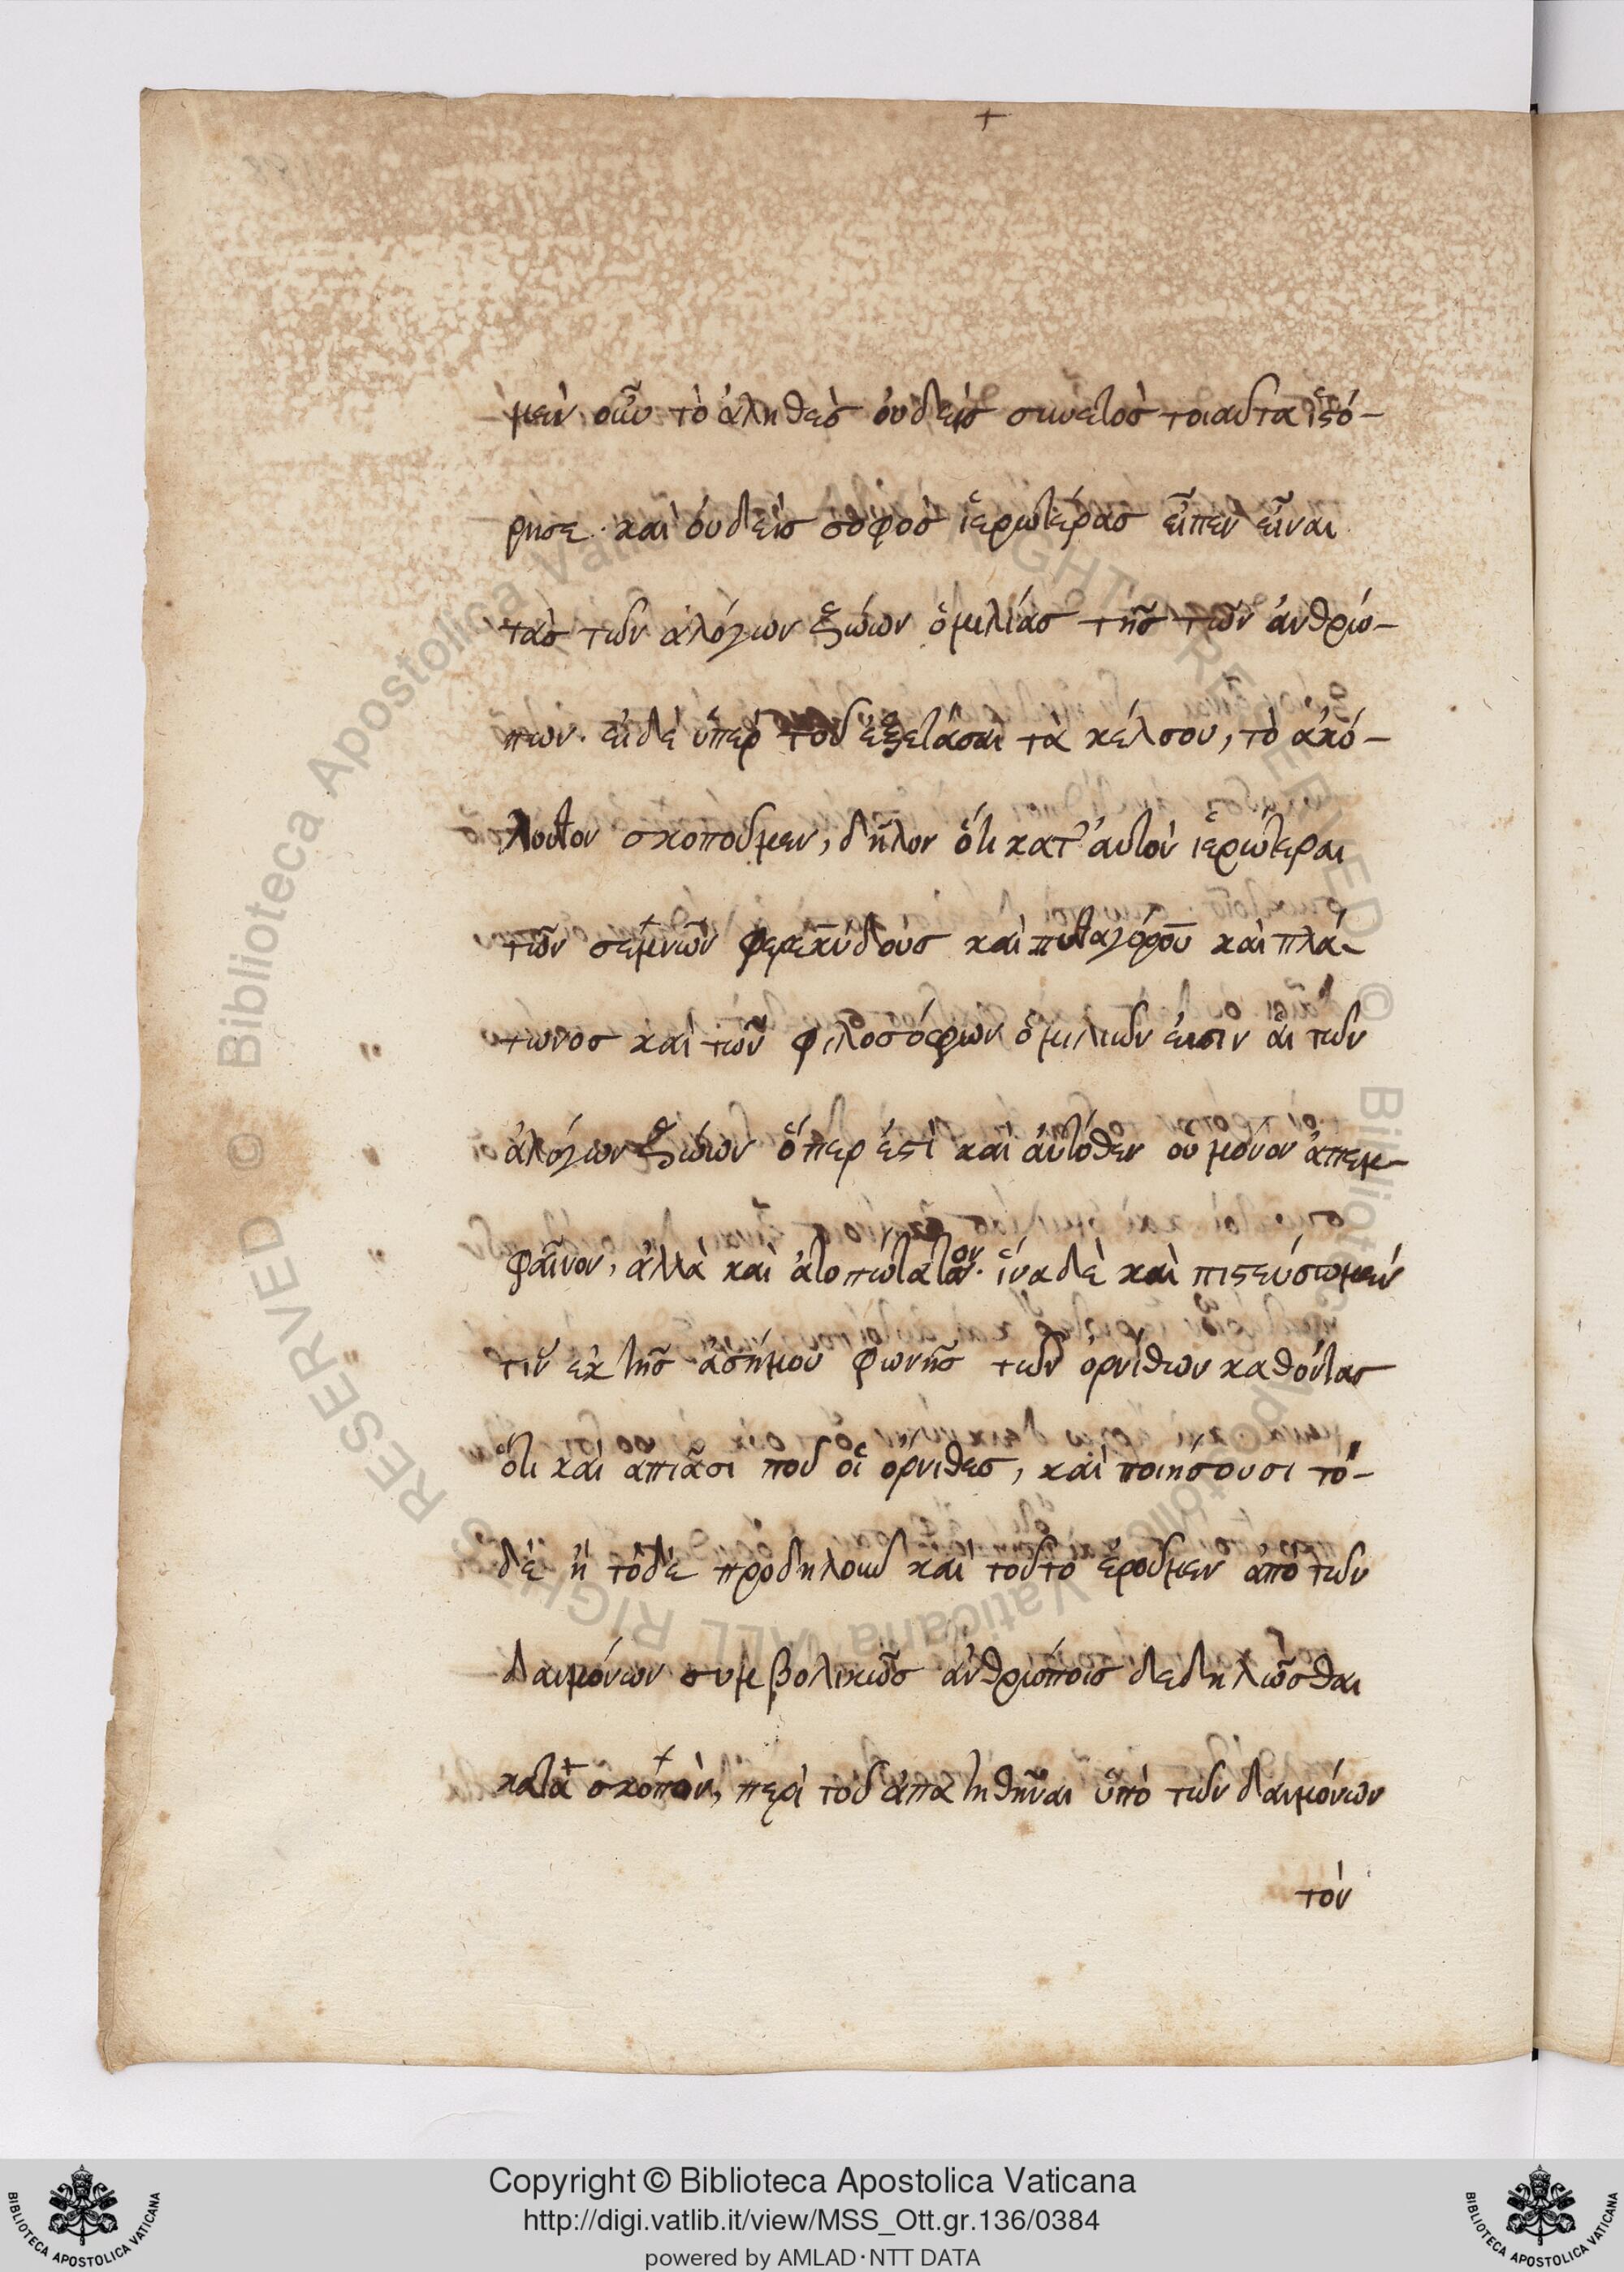 μὲν οὖν τὸ ἀληθὲς οὐδεὶς συνετὸς τοιαῦτα ἱστό-
ρησε. καὶ οὐδεὶς σοφὸς ἱερωτέρας εἶπεν εἶναι
τὰς τῶν ἀλόγων ζώων ὁμιλίας τῆς τῶν ἀνθρώ-
πων. εἰ δὲ ὑπὲρ τοῦ ἐξετάσαι τὰ κέλσου, τὸ ἀκό-
λουθον σκοποῦμεν, δῆλον ὅτι κατ' αὐτὸν ἱερώτεραι
τῶν σεμνῶν φερεκύδους καὶ πυθαγόρου καὶ πλά-
τωνος καὶ τῶν φιλοσόφων ὁμιλιῶν εἰσιν αἱ τῶν
ἀλόγων ζώων ὅπερ ἐστὶ καὶ αὐτόθεν οὐ μόνον ἀπεμ-
φαῖνον, ἀλλὰ καὶ ἀτοπώτατον. ἵνα δὲ καὶ πιστεύσωμεν
τιν ἐκ τῆς ἀσήμου φωνῆς τῶν ὀρνίθων καθόντας
ὅτι καὶ ἀπιᾶσι ποῦ οἱ ὄρνιθες, καὶ ποιήσουσι τό-
δε ἢ τόδε προδηλοῦν καὶ τοῦτο ἐροῦμεν ἀπὸ τῶν
δαιμόνων συμβολικῶς ἀνθρώποις δεδηλῶσθαι
κατὰ σκοπὸν, περὶ τοῦ ἀπατηθῆναι ὑπὸ τῶν δαιμόνων
τὸν
Copyright © Biblioteca Apostolica Vaticana
http://digi.vatlib.it/view/MSS_Ott.gr.136/0384
powered by AMLAD·NTT DATA